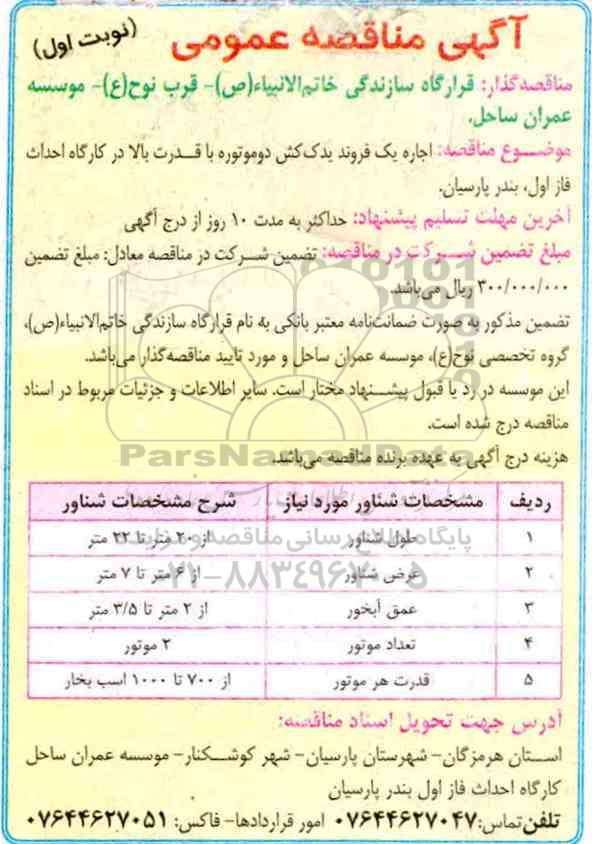 آگهی مناقصه عمومی (نوبت اول)
مناقصه‌گذار: قرارگاه سازندگی خاتم‌الانبیاء(ص)- قرب نوح(ع)- موسسه
عمران ساحل.
موضوع مناقصه: اجاره یک فروند یدک‌کش دوموتوره با قدرت بالا در کارگاه احداث
فاز اول، بندر پارسیان.
آخرین مهلت تسلیم پیشنهاد: حداکثر به مدت ۱۰ روز از درج آگهی
مبلغ تضمین شرکت در مناقصه: تضمین شرکت در مناقصه معادل: مبلغ تضمین
۳۰۰/۰۰۰/۰۰۰ ریال می‌باشد.
تضمین مذکور به صورت ضمانت‌نامه معتبر بانکی به نام قرارگاه سازندگی خاتم‌الانبیاء(ص)،
گروه تخصصی نوح(ع)، موسسه عمران ساحل و مورد تایید مناقصه‌گذار می‌باشد.
این موسسه در رد یا قبول پیشنهاد مختار است. سایر اطلاعات و جزئیات مربوط در اسناد
مناقصه درج شده است.
ParsNamadData
هزینه درج آگهی به عهده برنده مناقصه می‌باشد.
ردیف مشخصات شناور مورد نیاز شرح مشخصات شناور
۱ طول شناور از ۲۰ متر تا ۲۲ متر
پایگاه اطلاع رسانی مناقصه و مزایده
۲ عرض شناور از ۶ متر تا ۷ متر
۰۲۱-۸۸۳۴۹۶۷۰-۵
۳ عمق آبخور از ۲ متر تا ۳/۵ متر
۴ تعداد موتور ۲ موتور
۵ قدرت هر موتور از ۷۰۰ تا ۱۰۰۰ اسب بخار
آدرس جهت تحویل اسناد مناقصه:
استان هرمزگان- شهرستان پارسیان- شهر کوشکنار- موسسه عمران ساحل
کارگاه احداث فاز اول بندر پارسیان
تلفن تماس: ۰۷۶۴۴۶۲۷۰۴۷ امور قراردادها- فاکس: ۰۷۶۴۴۶۲۷۰۵۱